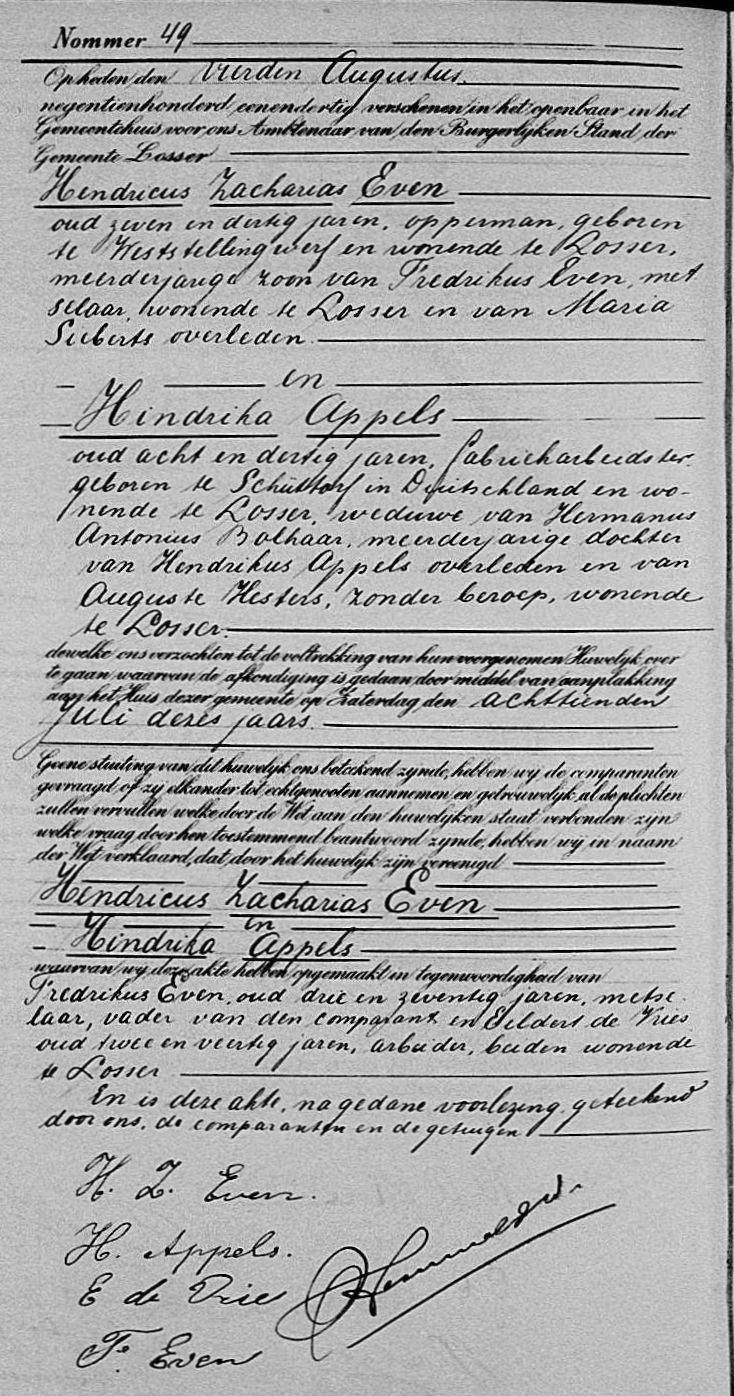 Nommer 49
Op heden den vierden Augustus.
negentienhonderd eenendertig verschenen in het openbaar in het
Gemeentehuis voor ons Ambtenaar van den Burgerlijken Stand der
Gemeente Losser
Hendricus Zacharias Even
oud zeven en dertig jaren, opperman, geboren
te Weststellingwerf en wonende te Losser,
meerderjarige zoon van Fredrikus Even, met
selaar, wonende te Losser en van Maria
Sieberts overleden.
en
Hindrika Appels
oud acht en dertig jaren, fabrieksarbeidster.
geboren te Schüttorf in Duitschland en wo-
nende te Losser, weduwe van Hermanus
Antonius Bolhaar, meerderjarige dochter
van Hendrikus Appels overleden en van
Auguste Hesters, zonder beroep, wonende
te Losser.
dewelke ons verzochten tot de voltrekking van hun voorgenomen Huwelijk over
te gaan waarvan de afkondiging is gedaan door middel van aanplakking
aan het Huis dezer gemeente op Zaterdag den achttienden
Juli dezes jaars.
Geene stuiting van dit huwelijk ons beteekend zynde, hebben wij de comparanten
gevraagd of zij elkander tot echtgenooten aannemen en getrouwelijk al de plichten
zullen vervullen welke door de Wet aan den huwelijken staat verbonden zijn
welke vraag door hen toestemmend beantwoord zynde, hebben wij in naam
der Wet verklaard, dat door het huwelijk zijn vereenigd
Hendricus Zacharias Even
en
Hindrika Appels
waarvan wij deze akte hebben opgemaakt in tegenwoordigheid van
Fredrikus Even, oud drie en zeventig jaren, metse
laar, vader van den comparant en Eeldert de Vries
oud twee en veertig jaren, arbeider, beiden wonende
te Losser
En is deze akte, na gedane voorlezing, geteekend
door ons, de comparanten en de getuigen
H. Z. Even.
H. Appels.
E de Vries
F. Even